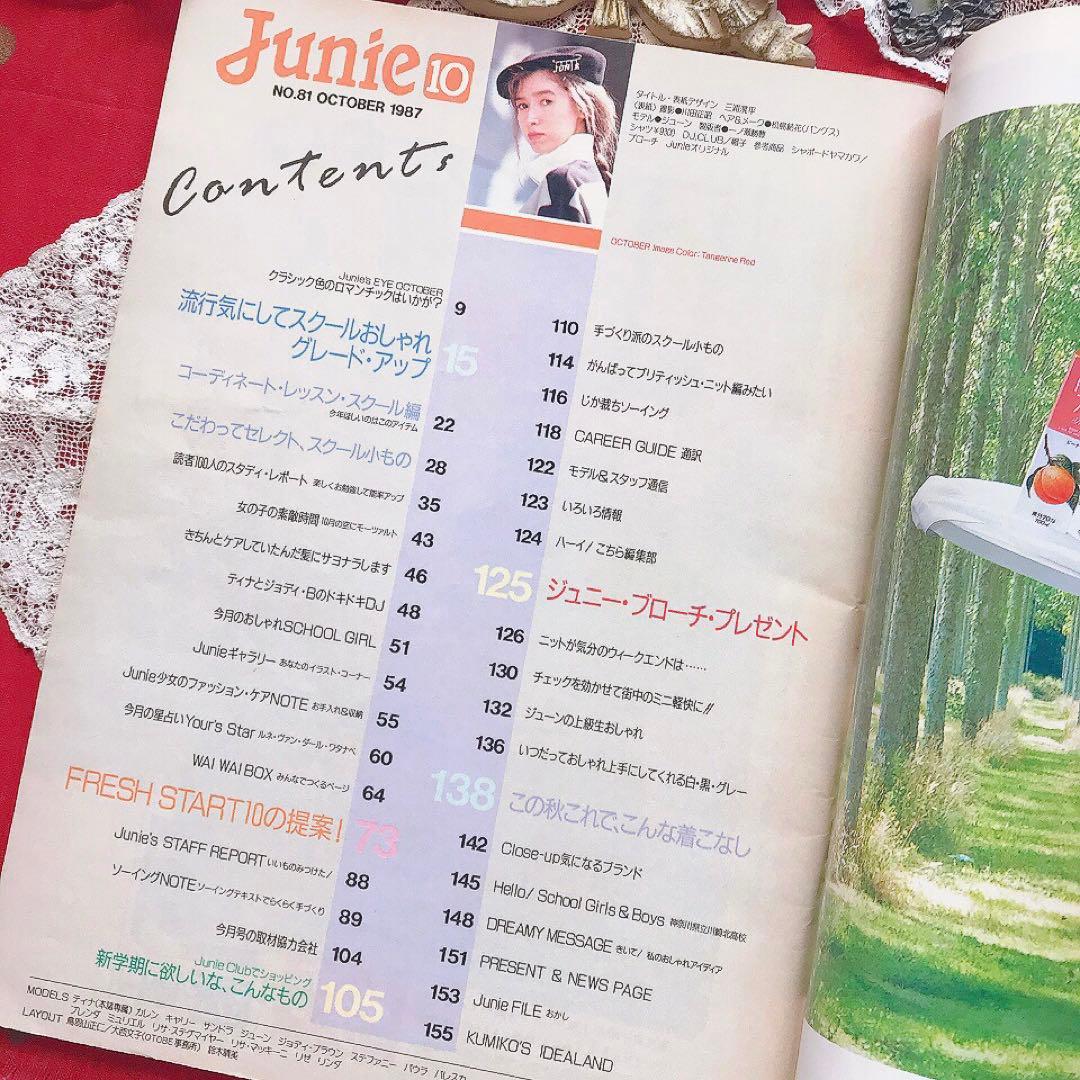 Junie 10
NO.81 OCTOBER 1987
Contents
タイトル・表紙デザイン 三浦滉平
ヘア&メーク●松島結花(バングス)
モデル●ジューン 製版者●一ノ瀬勝尊
シャツ¥9,100 DJ.CLUB/帽子 参考商品 シャポードヤマカワ/
ブローチ Junieオリジナル
OCTOBER Image Color: Tangerine Red
Junie's EYE OCTOBER
クラシック色のロマンチックはいかが? 9
流行気にしてスクールおしゃれ
グレード・アップ 15
コーディネート・レッスン・スクール編
今年ほしいのはこのアイテム 22
こだわってセレクト、スクール小もの 28
読者100人のスタディ・レポート 楽しくお勉強して能率アップ 35
女の子の素敵時間 10月の空にモーツァルト 43
きちんとケアしていたんだ髪にサヨナラします 46
ティナとジョディ・BのドキドキDJ 48
今月のおしゃれSCHOOL GIRL 51
Junieギャラリー あなたのイラスト・コーナー 54
Junie少女のファッション・ケアNOTE お手入れ&収納 55
今月の星占いYour's Star ルネ・ヴァン・ダール・ワタナベ 60
WAI WAI BOX みんなでつくるページ 64
FRESH START10の提案! 73
Junie's STAFF REPORT いいものみつけた! 88
ソーイングNOTE ソーイングテキストでらくらく手づくり 89
今月号の取材協力会社 104
Junie Clubでショッピング
新学期に欲しいな、こんなもの 105
110 手づくり派のスクール小もの
114 がんばってブリティッシュ・ニット編みたい
116 じか裁ちソーイング
118 CAREER GUIDE 通訳
122 モデル&スタッフ通信
123 いろいろ情報
124 ハーイ! こちら編集部
125 ジュニー・ブローチ・プレゼント
126 ニットが気分のウィークエンドは……
130 チェックを効かせて街中のミニ軽快に!!
132 ジューンの上級生おしゃれ
136 いつだっておしゃれ上手にしてくれる白・黒・グレー
138 この秋これで、こんな着こなし
142 Close-up気になるブランド
145 Hello! School Girls & Boys 神奈川県立川崎北高校
148 DREAMY MESSAGE きいて! 私のおしゃれアイディア
151 PRESENT & NEWS PAGE
153 Junie FILE おかし
155 KUMIKO'S IDEALAND
MODELS ティナ(本誌専属) カレン キャリー サンドラ ジューン ジョディ・ブラウン ステファニー パウラ バレスカ
ブレンダ ミュリエル リサ・ステゲマイヤー リサ・マッキーニ リゼ リンダ
LAYOUT 鳥羽山正仁/大西文子(OTOBE事務所) 鈴木晴美